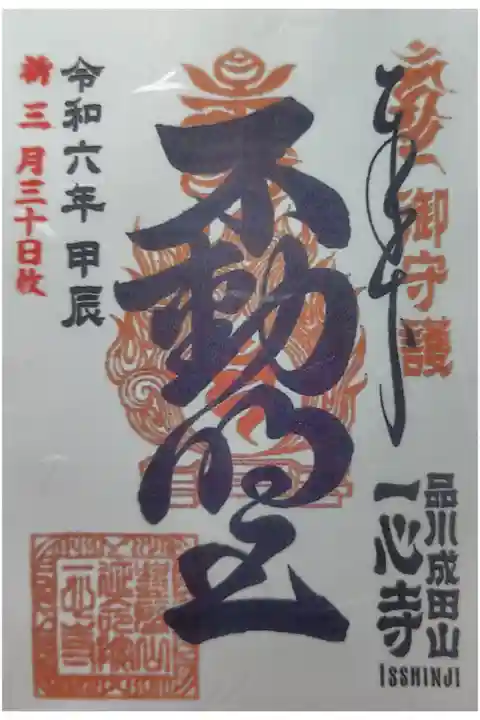 奉拝
御守護
品川成田山
一心寺
ISSHINJI
不動明王
令和六年 甲辰
三月三十日